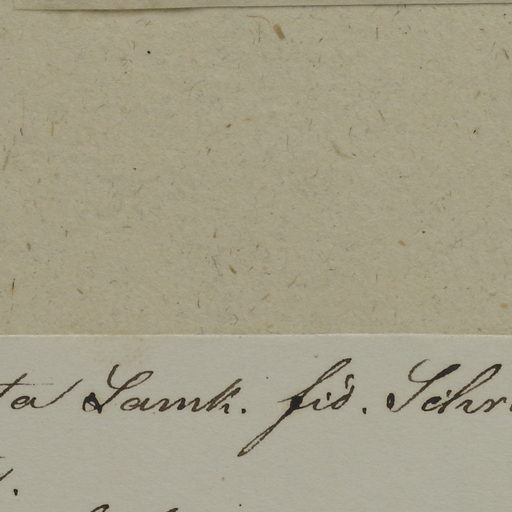 ta Lamk. fid. Schr